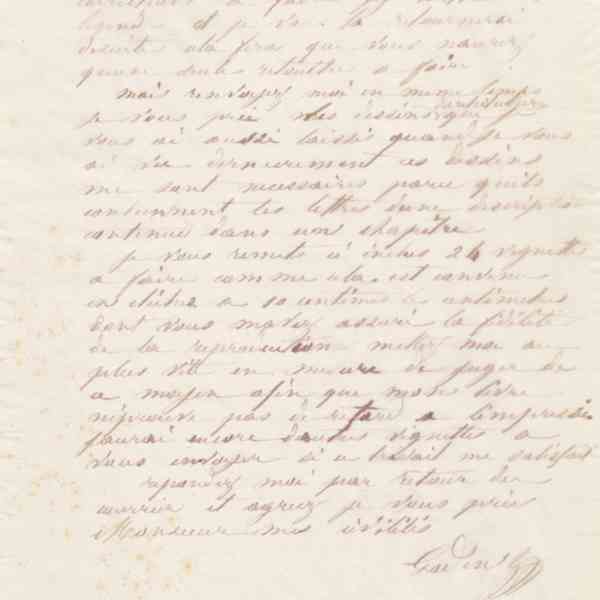 et je vous la retournerai
desuite cela fera que vous naurez
quune seule retouche a faire
mais renvoyez moi en meme temps
je vous prie les dessins que je
d'architecture
vous ai aussi laissé quand je vous
ai vu dernierement ces dessins
me sont necessaires parce quils
contiennent les lettres dune description
contenue dans un chapitre
je vous remets ci inclus 26 vignettes
a faire comme cela est convenu
en clichés a 10 centimes le centimetre
dont vous mavez assuré la fidélité
de la reproduction mettez moi au
plus vite en mesure de juger de
a moyen afin que mon livre
néprouve pas de retard a limpression
jaurai encore dautres vignettes a
vous envoyer si ce travail me satisfait
repondez moi par retour du
courrier et agreez je vous prie
Monsieur mes civilités